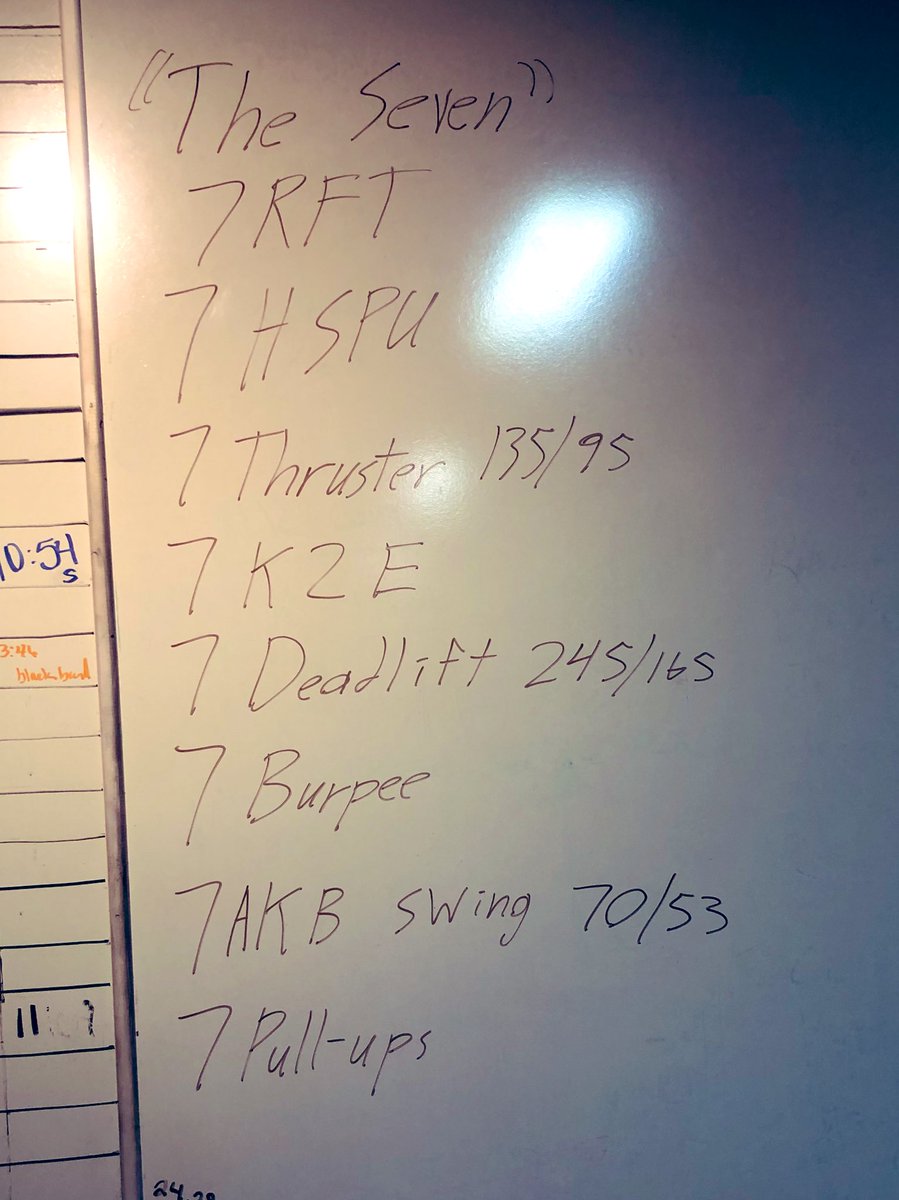 "The Seven"
7 RFT
7 HSPU
7 Thruster 135/95
7 K2E
7 Deadlift 245/165
7 Burpee
7 AKB swing 70/53
7 Pull-ups
0:54
s
3:46
11